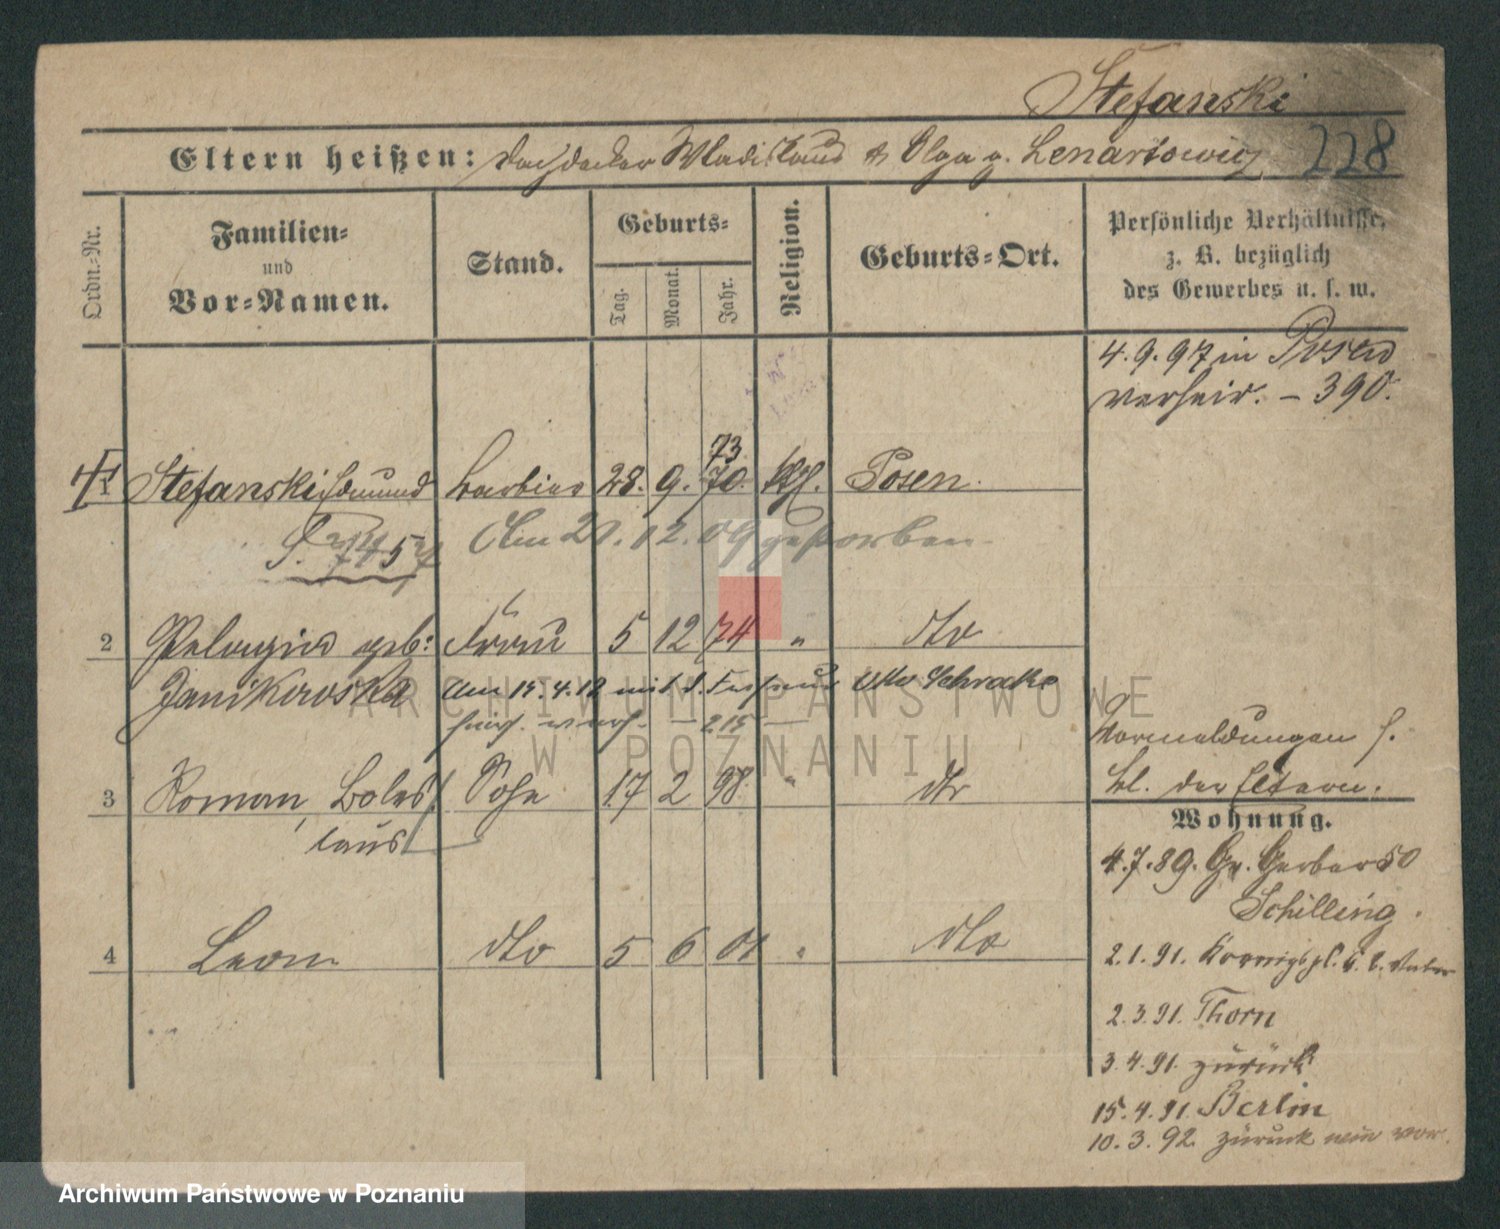 Stefanski
Eltern heißen: Dachdecker Wladislaus & Olga g. Lenartowicz 228
Ordn.-Nr.
Familien- und Vor-Namen.
Stand.
Geburts-
Tag.
Monat.
Jahr.
Religion.
Geburts-Ort.
Persönliche Verhältnisse,
z. B. bezüglich
des Gewerbes u. s. w.
4.9.97 in Posen
verheir. – 390.
73
1 Stefanski Edmund Barbier 28. 9. 70. kth. Posen.
Am 21.12.09 gestorben.
2 Pelagia geb: Frau 5 12 74 " dto
Janikowska Am 14.4.12 mit d. Otto Schrake
hier verh. – 215 –
3 Roman, Boles/ Sohn 17 2 98 " dto
laus
4 Leon dto 5 6 01 " dto
Vormeldungen s.
bl. der Eltern.
Wohnung.
4.7.89. Gr. Gerber 50
Schilling.
2.1.91.
2.3.91. Thorn
3.4.91. zurück
15.4.91. Berlin
10.3.92. zurück wie vor.
ARCHIWUM PAŃSTWOWE
W POZNANIU
Archiwum Państwowe w Poznaniu